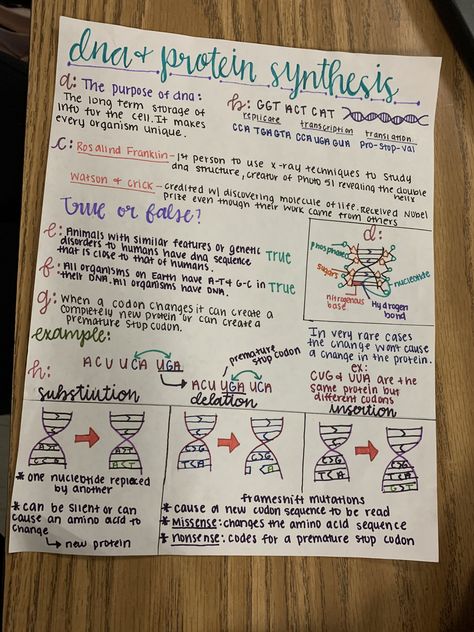 dna & protein synthesis
a: The purpose of dna:
The long term storage of
info for the cell. It makes
every organism unique.
b: GGT ACT CAT
replicate transcription translation
CCA TGA GTA CCA UGA GUA Pro-Stop-Val
c: Rosalind Franklin - 1st person to use x-ray techniques to study
dna structure, creator of Photo 51 revealing the double
helix
Watson & Crick - credited w/ discovering molecule of life. Received Nobel
Prize even though their work came from others
True or false?
e: Animals with similar features or genetic
disorders to humans have dna sequence
that is close to that of humans.
True
f: All organisms on Earth have A-T & G-C in
their DNA. All organisms have DNA.
True
d:
phosphate
sugar
nucleotide
nitrogenous
base
Hydrogen
bond
g: When a codon changes it can create a
completely new protein or can create a
premature stop codon.
example:
In very rare cases
the change wont cause
a change in the protein.
ex:
CUG & UUA are the
same protein but
different codons
h: ACU UCA UGA
premature
stop codon
ACU UGA UCA
substiution
delation
insertion
* one nucleotide replaced
by another
* can be silent or can
cause an amino acid to
change
new protein
frameshift mutations
* cause a new codon sequence to be read
* missense: changes the amino acid sequence
* nonsense: codes for a premature stop codon